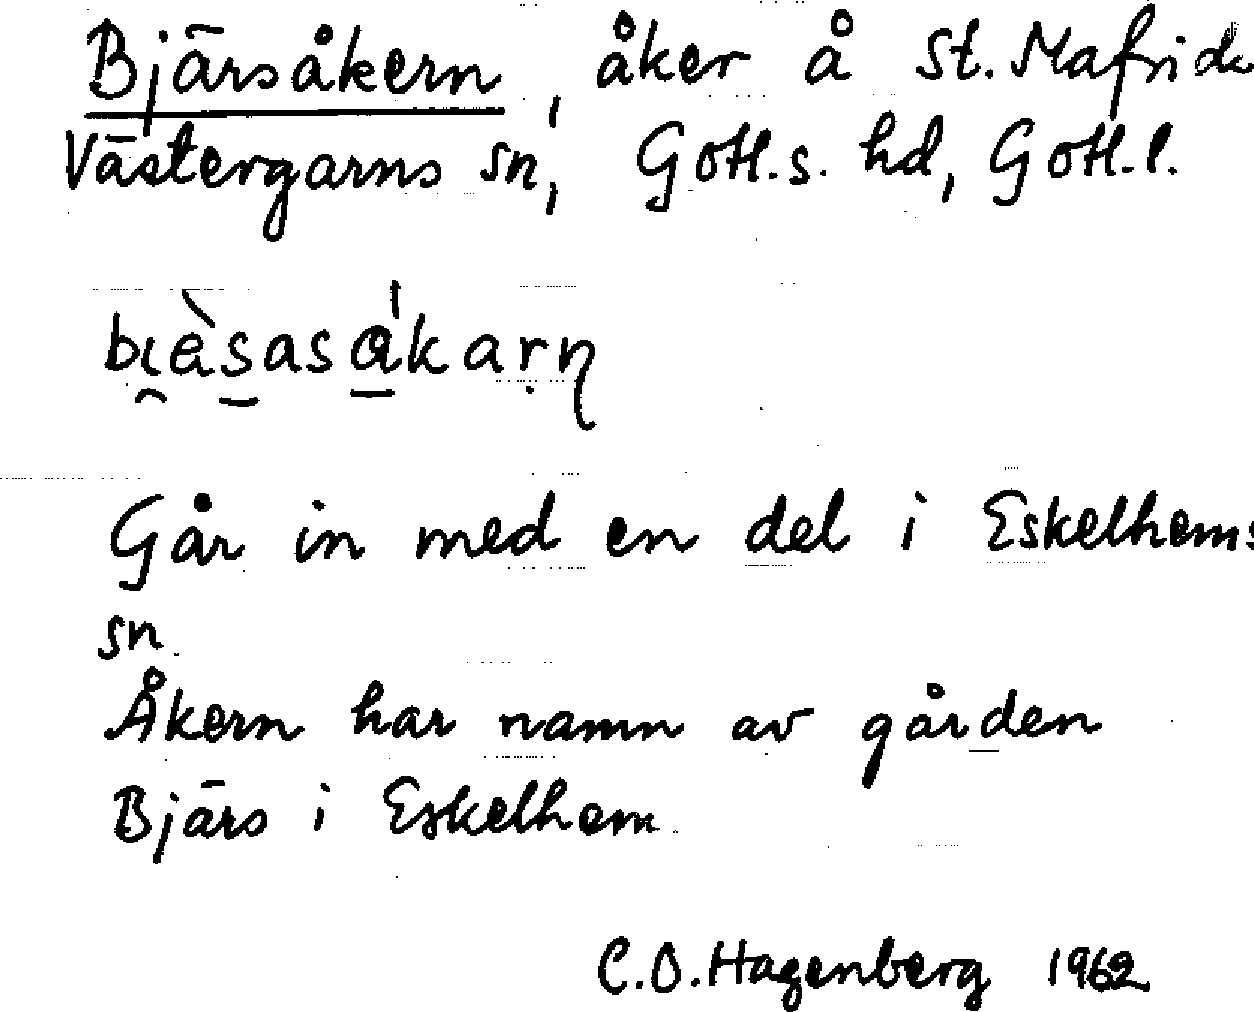 Bjärsåkern, åker å St. Mafrids
Västergarns sn, Gotl.s. hd, Gotl.l.
bɪ̯èsasákarṇ
Går in med en del i Eskelhems
sn.
Åkern har namn av gården
Bjärs i Eskelhem.
C.O. Hagenberg 1962